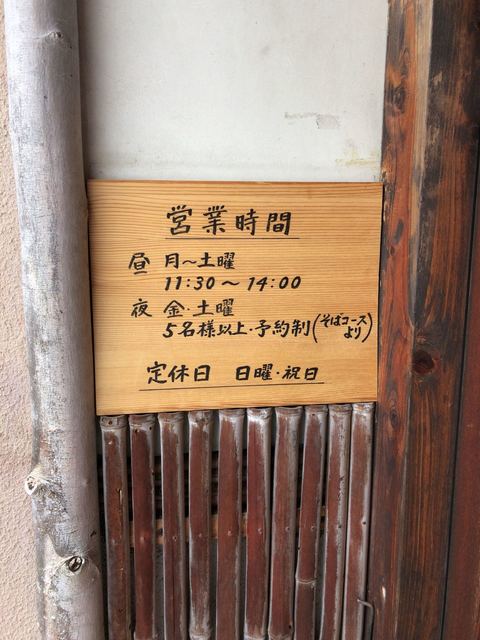 営業時間
昼 月〜土曜
11:30〜14:00
夜 金・土曜
5名様以上・予約制(そばコース
より)
定休日 日曜・祝日